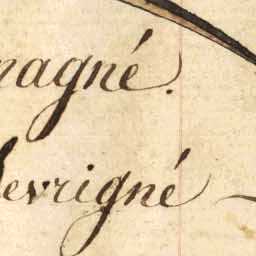 nagné.
Sevrigné